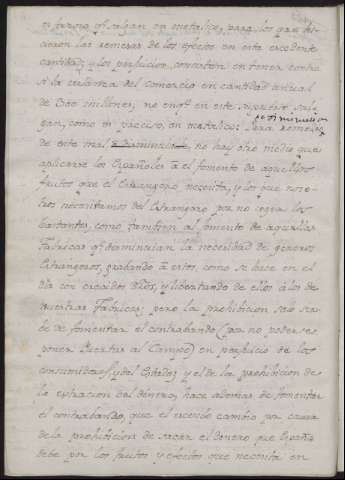 ni fueron qe. salgan en metalico, para los que hi-
cieron las remesas de los efectos en esta excedente
cantidad; y los perjuicios consisten en tener contra
si la valanza del comercio en cantidad anual
de 300 millones, no enqe. en este supuesto sal-
gan, como es preciso, en metalico: Para remedio
o diminucion
de este mal no hay otro medio que
aplicarse los Españoles á el fomento de aquellos
frutos que el Estrangero necesita, y los que noso-
tros necesitamos del Estrangero por no cogerse los
bastantes, como tambien al fomento de aquellas
Fabricas qe. disminuian la necesidad de generos
Estrangeros, grabando á estos, como se hace en el
dia con crecidos Dros, y libertando de ellos á los de
nuestras Fabricas; pero la prohibicion solo sir-
be de fomentar el contrabando (por no poderse
poner Puertas al Campo) en perjuicio de los
consumidores, y del Estado; y el de la prohibicion de
la extracion del dinero, hace ademas de fomentar
el contrabando, que el recivido cambio por causa
de la prohibicion de sacar el dinero que España
debe por los frutos y efectos que necesita en